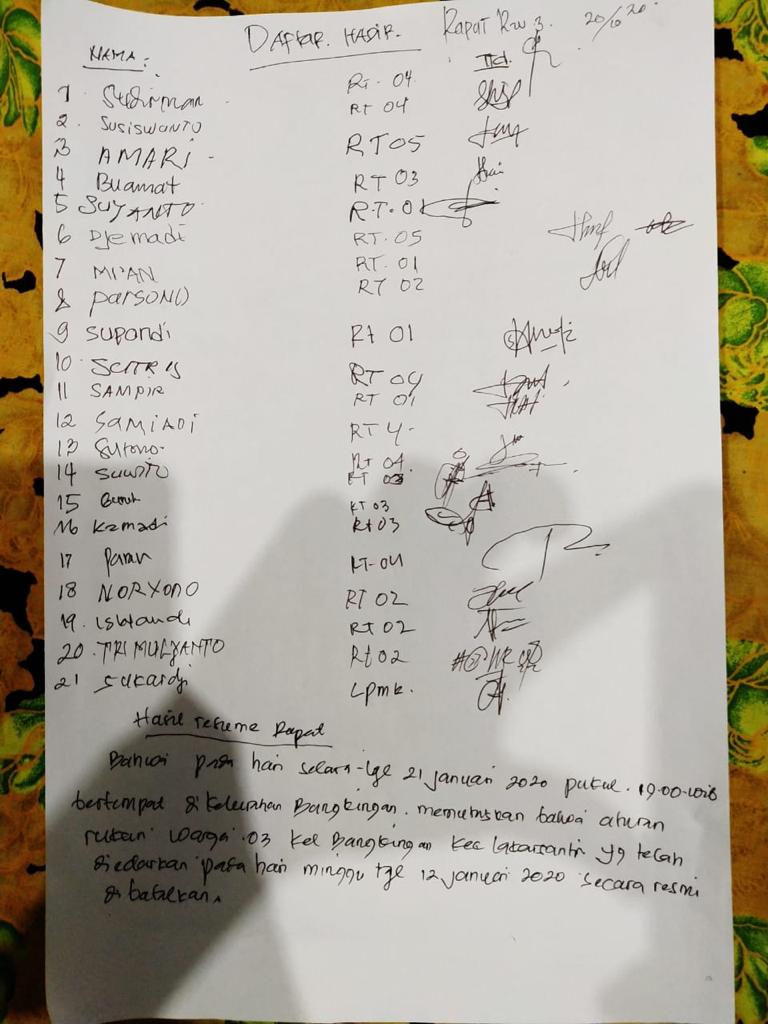 DAFTAR HADIR. Rapat Rw 3. 20/6 20
NAMA: Ttd.
1 Sudirman RT. 04
2. SUSISWANTO RT 04
3 AMARI RT05
4 Buamat RT 03
5 SUYANTO RT. 01
6 Djemadi RT. 05
7 MI'AN RT. 01
8 PARSONO RT 02
9 Supandi Rt 01
10 RT 04
11 SAMPIR RT 01
12 SAMIADI RT 4
13 Sutono. Rt 04.
14 Suwito RT 03
15 RT 03
16 Karmadi Rt 03
17 Paran RT-04
18 NORYONO RT 02
19. Iswandi Rt 02
20 TRI MULYANTO Rt 02
21 Sukardji Lpmk.
Hasil resume Rapat
Bahwa pada hari selasa-tgl 21 januari 2020 pukul. 19.00-WIB
bertempat di kelurahan Bangkingan. memutuskan bahwa aturan
rukun warga 03 kel Bangkingan kec Lakarsantri yg telah
diedarkan pada hari minggu tgl 12 januari 2020 secara resmi
di batalkan.